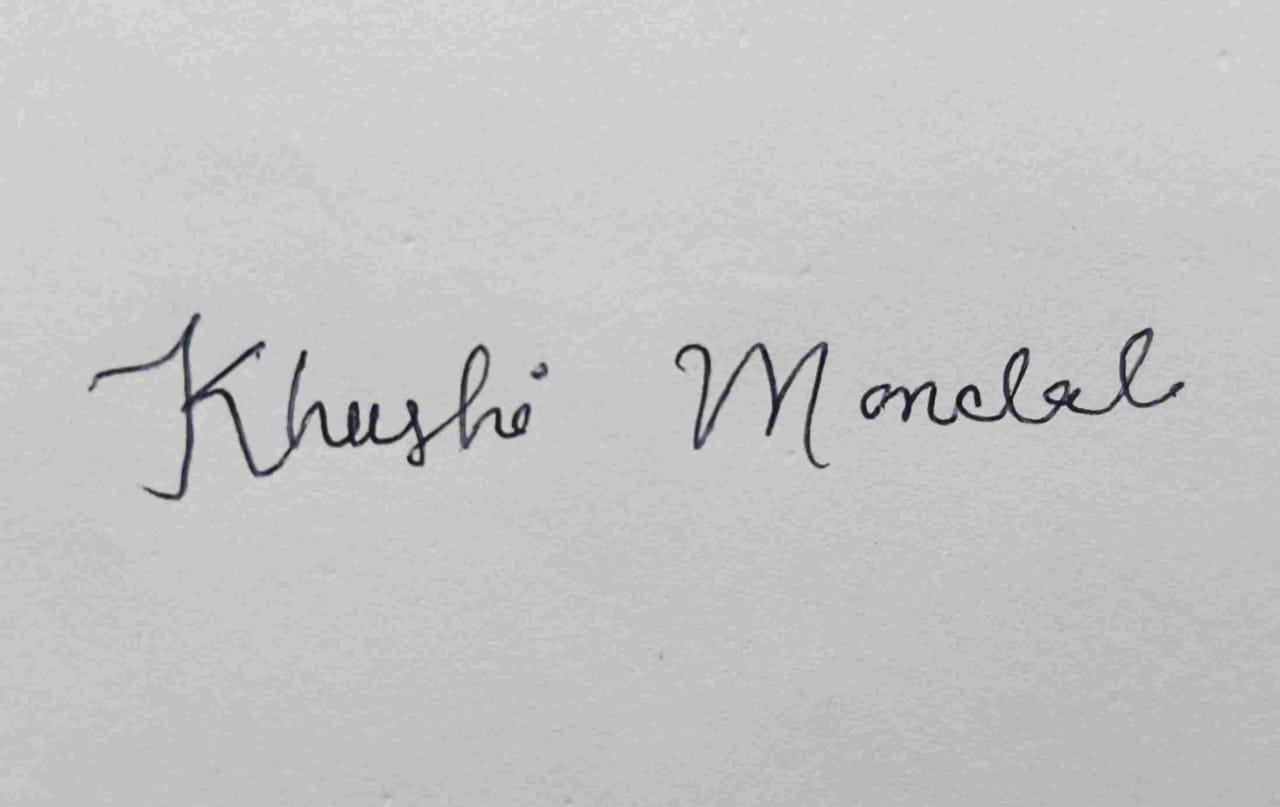 Khushi Mondal